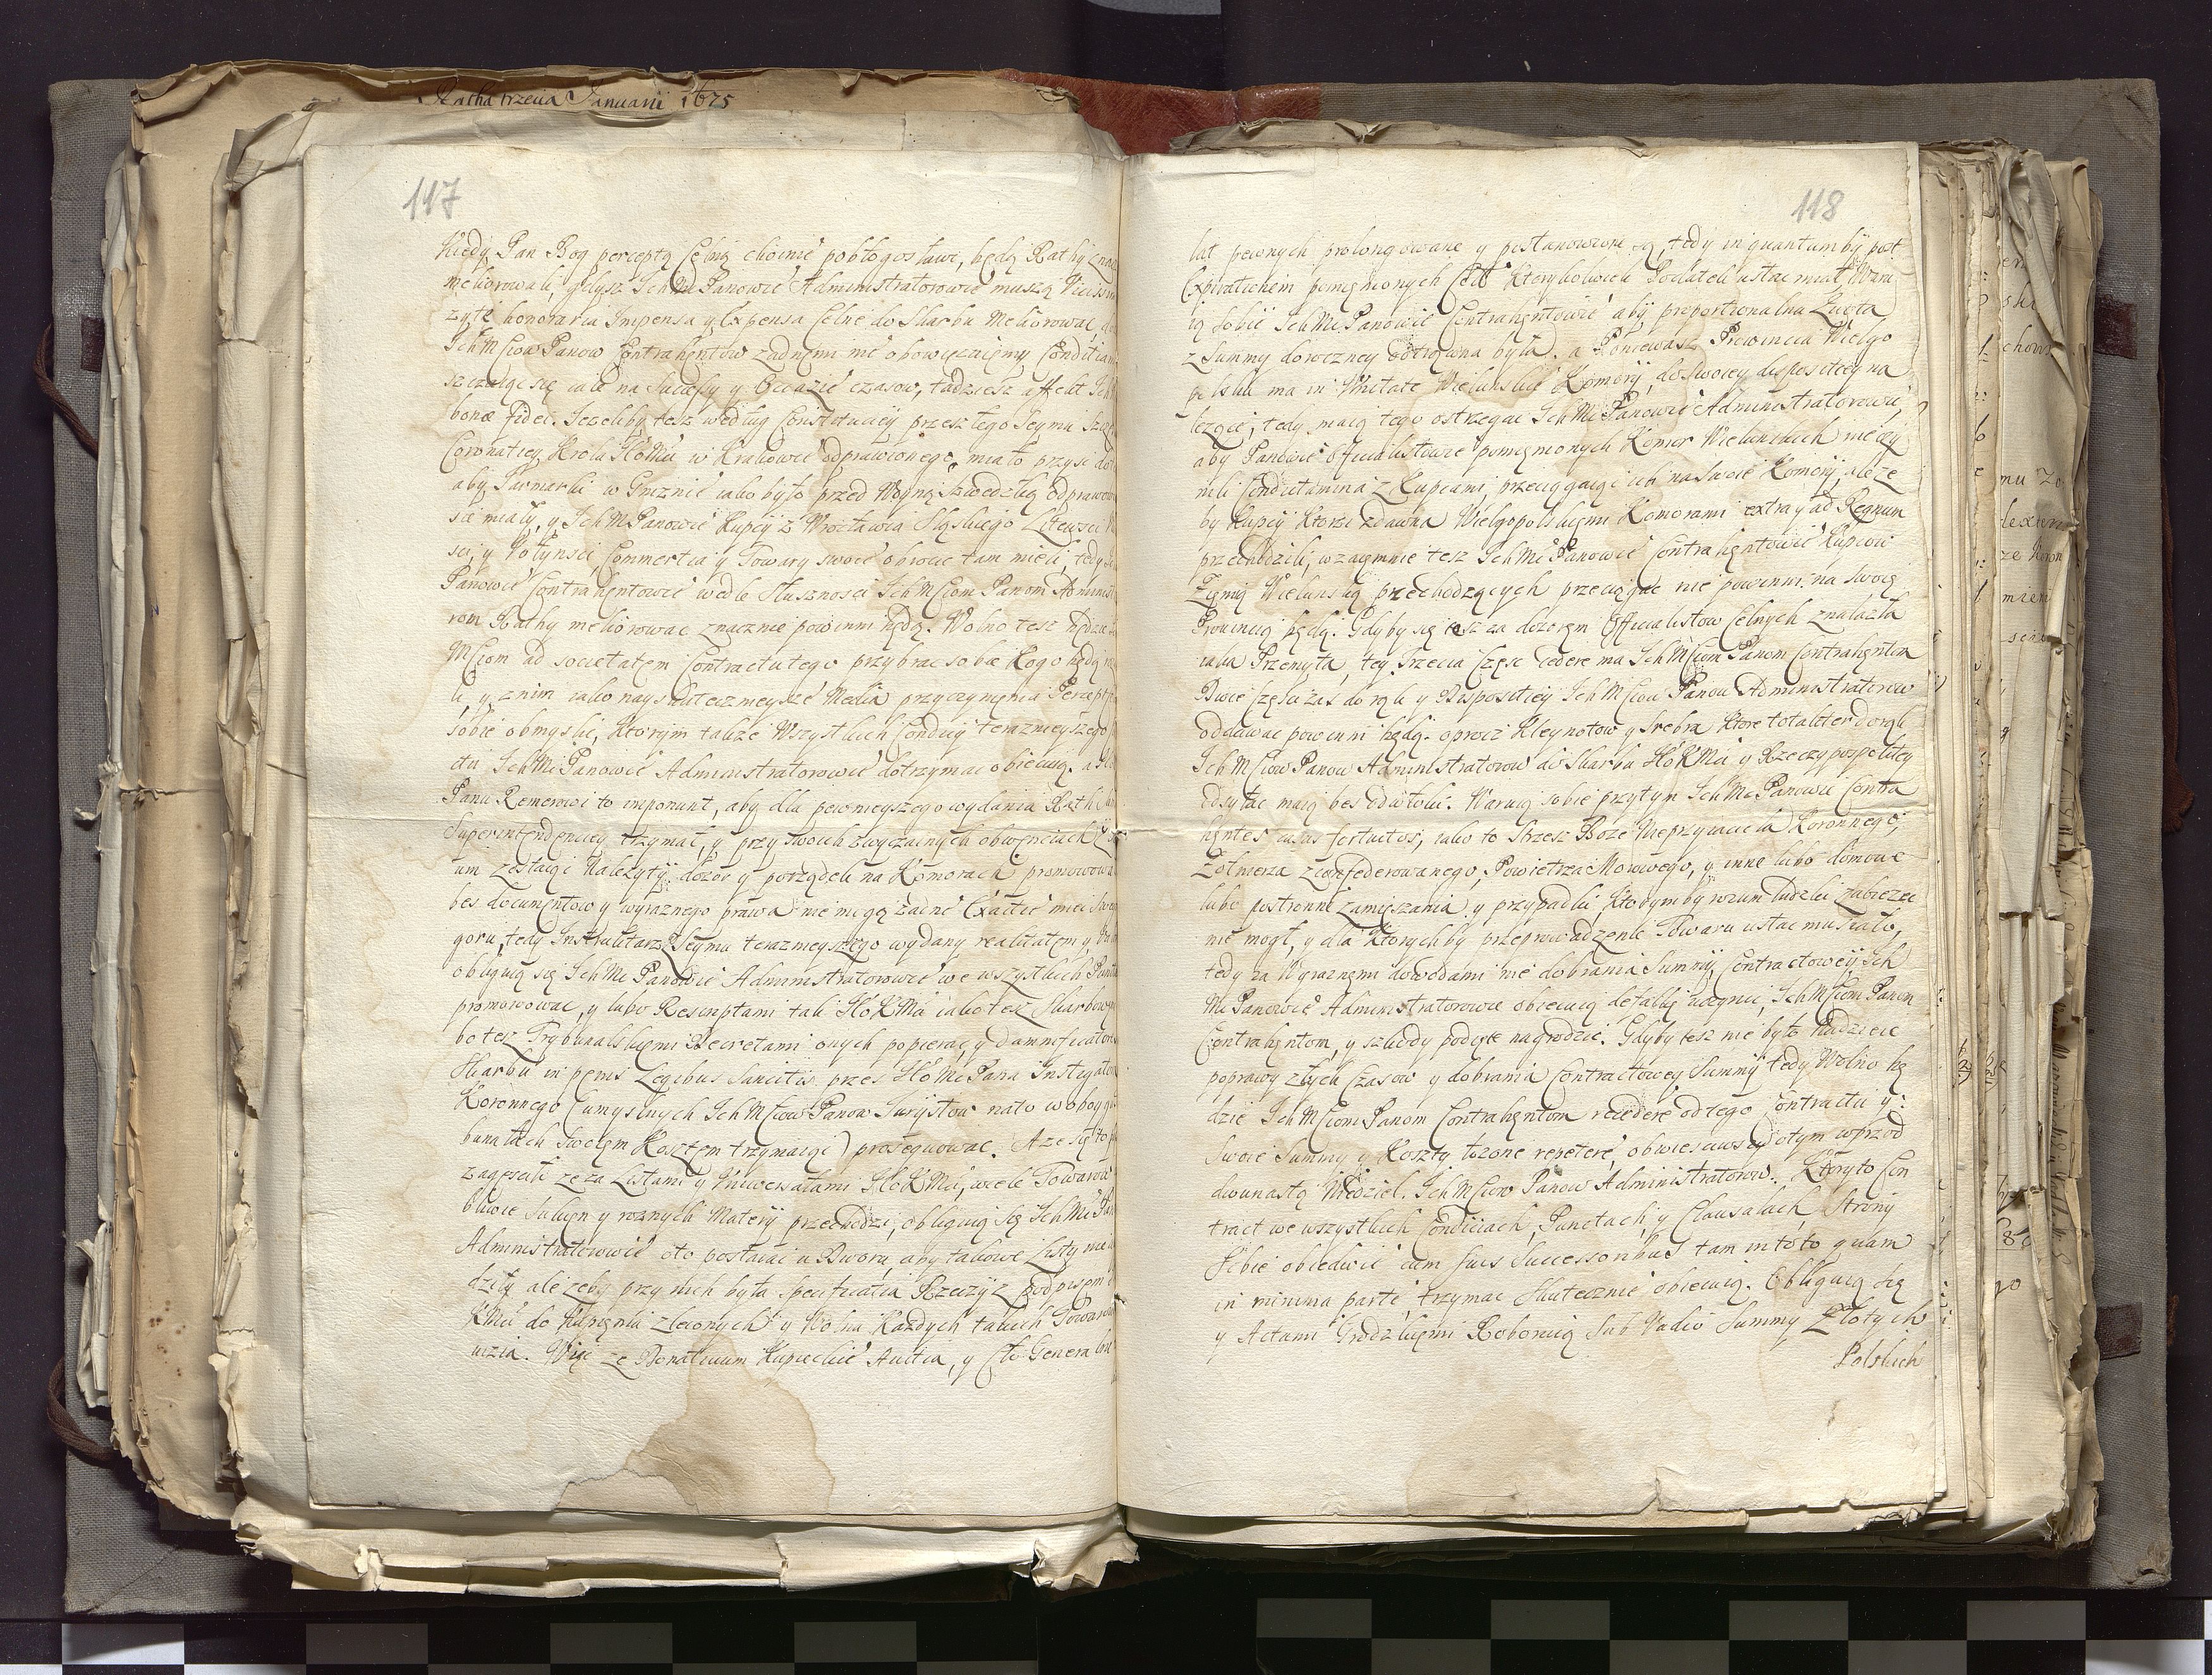 Ratha trzecia Januarii 1675
117
Kiedy Pan Bog perceptę Celną choinie pobłogosławi, będą Rathy znacz
meliorowali, gdysz IchMć Panowie Administratorowie muszą
zyte honoraria Impensa y Expensa Celne do Skarbu meliorować
IchMciow Panow Contrahentow zadnemi nie obowięzuiemy Conditiami
się iako na y Czasow, tudziesz affekt Ich
bonæ fidei. Iezeliby tesz według Constitucyi przeszłego Seymu
Coronatiey Krola IºMci w Krakowie odprawionego, miało przysc do
aby Iarmarki w Gnieznie iako było przed Woyną Szwedzką odprawow
sie miały, y IchM Panowie Kupcy z Wrocławia Sląskiego Litewscy
y Wołynscy, Commertia y Towary swoie obrocic tam mieli, tedy
Panowie Contrahentowie wedle słusznosci IchMciom Panom Administ
rom Rathy meliorowac znacznie powinni będą. Wolno tesz będzie
Mciom ad societatem Contractu tego przybrac sobie kogo będą
li, y z nim iako nayskutecznieysze Media przyczynienia Percepty
sobie obmyslic, Ktorym takze Wszystkich Condicyi terazneyszego
ctu IchMć Panowie Administratorowie dotrzymac obiecuią. a
Panu Remerowi to imponunt, aby dla pewnieyszego wydania Rath
Superintendenciey trzymał, y przy swoich zwyczaynych obwenciach
um zostaiąc Nalezyty dozor y porządek na Komorach promowowa
bes documentow y wyraznego prawa nie mogą zadne Exactie miec swe
goru, tedy Instruktarz Seymu terazneyszego wydany realitatem y
obliguią się IchMć Panowie Administratorowie we wszystkich Punkta
promowowac, y lubo Rescriptami tak IºKMci iako tesz Skarbow
bo tesz Trybunalskiemi Decretami onych popierac, y damnificatores
Skarbu in penis Legibus sancitis przes IºMci Pana Instigatora
Koronnego (umyslnych IchMciow Panow Iurystow na to w oboygu
bunałach swoiem Kosztem trzymaiąc) prosequowac. A ze się to
zagęscili ze za Listami y Uniwersałami IºKMci, wiele Towarow
bliwie Sukien y roznych Materyi przechodzi, obliguią się IchMć Pan
Administratorowie o to postarac u Dworu, aby takowe Listy nie
dziły ale zeby przy nich była specificatia Rzeczy z podpisem
KMci do Kupienia zleconych y Wolna Kazdych takich Towarow
wizia. Więc ze Donativum Kupieckie Auctia, y Cło Generalne
118
lat pewnych prolongowane y postanowione są, tedy inquantumby post
Expiratienem pomienionych Ceł Ktorykolwiek Podatek ustac miał, Waru
ią sobie IchMć Panowie Contrahentowie aby proportionalna Kwota
z Summy doroczney odtrącona była. a Poniewasz Prowincia Wielgo
polska ma in Vnitate Wielunskie Komory, do swoiey dispositiey na
lezące, tedy maią tego ostrzegac IchMć Panowie Administratorowie,
aby Panowie Officialistowie pomienionych Komor Wielunskich nie czy
nili Condictamina z Kupcami, przeciągaiąc ich na swoie Komory, ale ze
by Kupcy Ktorzi zdawna Wielgopolskiemi Komorami extra y ad Regnum
przechodzili, wzaiemnie tesz IchMć Panowie Contrahentowie Kupcow
Ziemią Wielunską przechodzących przeciągac nie powinni na swoię
Prowincią będą. Gdyby się tesz za dozorem Officialistow Celnych znalazła
iaka Przemyta, tey Trzecia Częsc cedere ma IchMciom Panom Contrahentom
Dwie Częsci zas do rąk y Dispositiey IchMciow Panow Administratorow
oddawac powinni będą. oprocz Kleynotow y srebra Ktore totaliter do rąk
IchMciow Panow Administratorow do Skarbu IºKMci y Rzeczypospolitey
odsyłac maią bes odwłoki. Waruią sobie przytym IchMć Panowie Contra
hentes casus fortuitos, iako to strzesz Boze Nieprzyiaciela Koronnego,
Zołnierza zconfederowanego, Powietrza Morowego, y inne lubo domowe
lubo postronne zamięszania y przypadki, Ktorymby rozum ludzki zabiezec
nie mogł, y dla Ktorychby przeprowadzenie Towaru ustac musiało,
tedy za Wyraznemi dowodami nie dobrania Summy Contractowey Ich
Mć Panowie Administratorowie obiecuią defalkę uczynic, IchMciom Panom
Contrahentom, y szkody podięte nagrodzic. Gdyby tesz nie było nadzieie
poprawy złych Czasow y dobrania Contractowey Summy tedy Wolno bę
dzie IchMciom Panom Contrahentom recedere od tego Contractu y
swoie Summy y Koszty łozone repetere, obwiesciwszy o tym wprzod
dwunastą Niedziel. IchMciow Panow Administratorow. Ktory to Con
tract we wszystkich Condiciach, Punctach, y Clausulach, Strony
sobie obiedwie cum suis Successoribus tam in toto quam
in minima parte, trzymac skutecznie obiecuią. Obliguią się
y Actami Grodzkiemi Roboruią sub Vadio Summy Złotych
Polskich